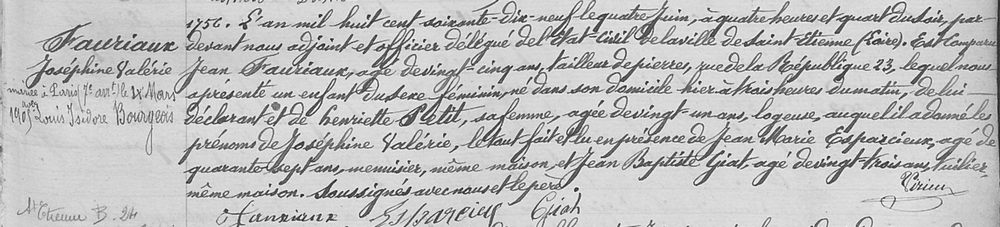 1756. L'an mil huit cent soixante-dix-neuf le quatre Juin, à quatre heures et quart du soir, par-
Fauriaux
devant nous adjoint et officier délégué de l'état-civil de la ville de Saint-Etienne (Loire). Est comparu
Joséphine Valérie
Jean Fauriaux, agé de vingt-cinq ans, tailleur de pierres, rue de la République 23, lequel nous
mariée à Paris 7e arrt le Mars
a présenté un enfant du sexe féminin, né dans son domicile hier à trois heures du matin, de lui
avec
1905 Louis Isidore Bourgeois
déclarant et de Henriette Petit, sa femme, agée de vingt-un ans, logeuse, auquel il a donné les
prénoms de Joséphine Valérie, le tout fait et lu en présence de Jean Marie Esparcieux, agé de
quarante-sept ans, menuisier, même maison, et Jean Baptiste Giat, agé de vingt-trois ans, tuilier,
même maison. Soussignés avec nous et le père.
St Etienne B. 24
Fauriaux Esparcieux Giat